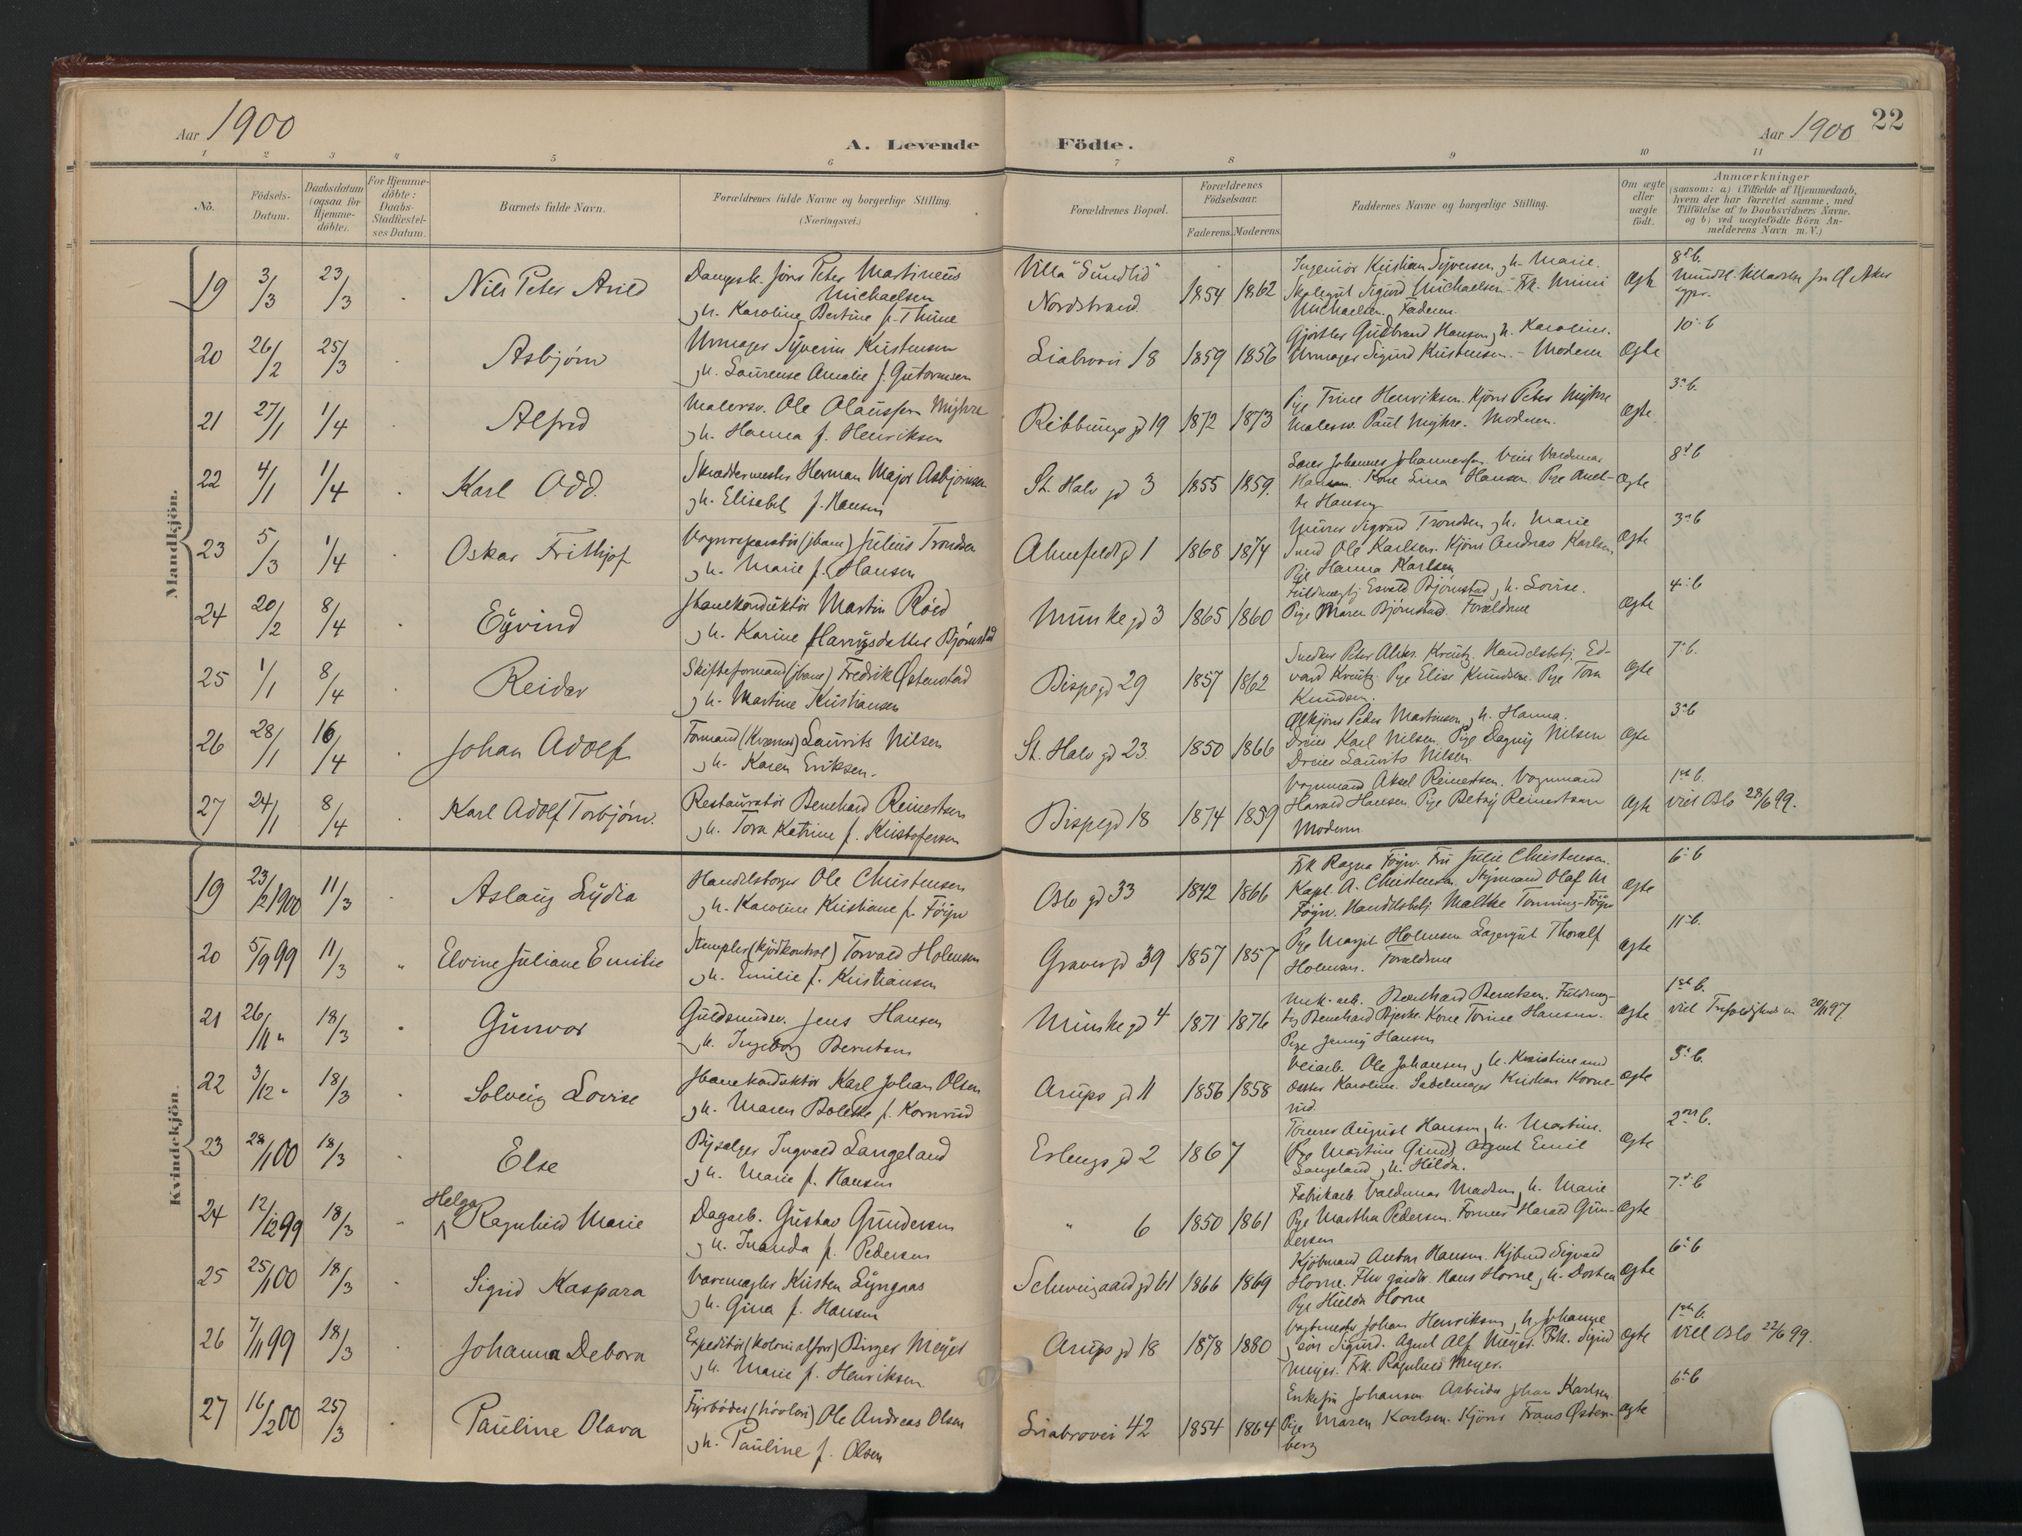 Aar 1900
A. Levende Födte.
Aar 1900 22
1 2 3 4 5 6 7 8 9 10 11
No. Födsels-Datum. Daabsdatum (ogsaa for Hjemme-döbte). For Hjemme-döbte: Daabs-Stadfæstel-ses Datum. Barnets fulde Navn. Forældrenes fulde Navne og borgerlige Stilling. (Næringsvei.) Forældrenes Bopæl. Forældrenes Födselsaar. Faderens. Moderens. Faddernes Navne og borgerlige Stilling. Om ægte eller uægte födt. Anmærkninger
(saasom: a) i Tilfælde af Hjemmedaab,
hvem der har forrettet samme, med
Tilföielse af to Daabsvidners Navne.
og b) ved uægtefödte Börn An-
melderens Navn m. V.)
Mandkjön.
19 3/3 23/3 Nils Peter Arild
Jörns Peter Martineus
Michaelsen
g h. Karoline Bertine f. Thune
Villa "Sundlid"
Nordstrand 1854 1862
Ingeniør Kristian Syversen g h. Marie.
Skolegut Sigurd Michaelsen - Frk. Mimi
Michaelsen. Faderen. Ægte 8de b.
20 26/2 25/3 Asbjørn
Urmager Syverin Kristensen
g h. Laurense Amalie f. Gutormsen
Liabrovei 18 1859 1856
Gjørtler Gudbrand Hansen g h. Karoline.
Urmager Sigurd Kristensen - Modern Ægte 10 b
21 27/1 1/4 Alfred
Malersv. Ole Olaussen Myhre
g h. Hanna f. Henriksen
Ribbungs gd 19 1872 1873
Pige Trine Henriksen. Kjörer Peter Myhre
Malersv. Paul Myhre. Modern. Ægte 3 b.
22 4/1 1/4 Karl Odd.
Skræddermester Herman Major Asbjørnsen
g h. Elisabet f. Hansen
St. Halv gd 3 1855 1859.
Johannes Johannessen
Hansen. Kone Lina Hansen. Pige Anet-
te Hansen Ægte 8 b
23 5/3 1/4 Oskar Frithjof
Vognreparatør (jbane) Julius Trondsen
g h. Marie f. Hansen
Ahnefeldt gd 1 1868 1874
Murer Sigvard Trondsen g h. Marie
Smed Ole Karlsen. Kjörer Andreas Karlsen
Pige Hanna Karlsen Ægte 3 b
24 20/2 8/4 Eyvind
Jbanekonduktör Martin Röed
g h. Karine Bjørnstad
Munke gd 3 1865 1860
Bjørnstad g h. Lovise.
Pige Maren Bjørnstad. Forældrene Ægte 4 b
25 1/1 8/4 Reidar
Skifteformand (jbane) Fredrik Østenstad
g h. Martine Kristiansen
Bispegd 29 1857 1862
Snedker Peter Kreutz. Handelsbetj. Ed-
vard Kreutz. Pige Elise Knudsen. Pige Tora
Knudsen. Ægte 7 b.
26 28/1 16/4 Johan Adolf
Formand Laurits Nilsen
g h. Karen Eriksen.
St. Halv gd 23. 1850 1866
Ølkjörer Peder Martinsen g h. Hanna.
Dreier Karl Nilsen. Pige Dagny Nilsen
Dreier Laurits Nilsen. Ægte 3 b
27 24/1 8/4 Karl Adolf Torbjörn.
Restauratør Bernhard Reinertsen
g h. Tora Katrine f. Kristofersen
Bispegd 18 1874 1859
Vognmand Aksel Reinertsen. Vognmand
Harald Hansen. Pige Betsy Reinertsen
Modern Ægte 1ste b.
viet Oslo 28/6 99.
Kvindekjön.
19 23/2 1900 11/3 Aslaug Lydia
Handelsborger Ole Christensen
g h. Karoline Kristiane f. Föyn
Oslo gd 33 1842 1866
Frk Ragna Föyn. Fru Julie Christensen.
Kapt. A. Christensen. Styrmand Olaf M
Föyn. Handelsbetj. Maltke Tönning-Föyn Ægte 6 b
20 5/9 99 11/3 Elvine Juliane Emilie
Stempler (Kjödkontrol) Torvald Holmsen
g h. Emilie f. Kristiansen
Graver gd 39 1857 1857
Pige Margit Holmsen Lagergut Thoralf
Holmsen. Forældrene Ægte 11 b.
21 26/11 " 18/3 Gunvor
Guldsmedsv. Jens Hansen
g h. Ingeborg Berntsen
Munke gd 4 1871 1876
Mek. arb. Bernhard Berntsen. Fuldmæg-
tig Bernhard Bjerke. Kone Torine Hansen.
Pige Jenny Hansen Ægte 1ste b.
viet 20/11 97
22 3/12 " 18/3 Solveig Lovise
Jbanekonduktör Karl Johan Olsen
g h. Maren Bolette f. Kornrud
Arups gd 11 1856 1858
Veiarb. Ole Johansen g h. Kristine med
datter Karoline. Sadelmager Kristian Korn-
rud. Ægte 5 b.
23 28/1 00 18/3 Else
Bysælger Ingvald Langeland
g h. Marie f. Hansen
Erlings gd 2 1867
Tömrer August Hansen g h. Martine.
Pige Martine Agent Emil
Langeland g h. Hilda. Ægte 2 b.
24 12/12 99 18/3 Helga Ragnhild Marie
Dagarb. Gustav Gundersen
g h. Inanda f. Pedersen
" 6 1850 1861
Fabrikarb. Valdemar Madsen g h. Marie
Pige Martha Pedersen. Former Harald Gun-
dersen Ægte 7 b
25 25/1 00 18/3 Sigrid Kaspara
Varemægler Kristen Lyngaas
g h. Gina f. Hansen
Schweigaards gd 61 1866 1869
Kjöbmand Anton Hansen. Kjbmd Sigvald
Horne. Hans Horne g h. Dorthea
Pige Hilda Horne Ægte 6 b
26 7/11 99 18/3 Johanna Debora
Expeditör (kolonialforr.) Birger Meyer
g h. Marie f. Henriksen
Arups gd 18 1878 1880
Vagtmester Johan Henriksen g h. Johanne
sön Sigurd. Agent Alf Meyer. Frk. Sigrid
Meyer. Frk. Ragnhild Meyer. Ægte 1ste b.
Viet Oslo 22/6 99.
27 16/2 00 25/3 Pauline Olava
Fyrböder Ole Andreas Olsen
g h. Pauline f. Olsen
Liabrovei 42 1854 1864
Enkefru Johansen Arbeider Johan Karlsen
Pige Maren Karlsen. Kjörer Frans Østen-
berg Ægte 6 b